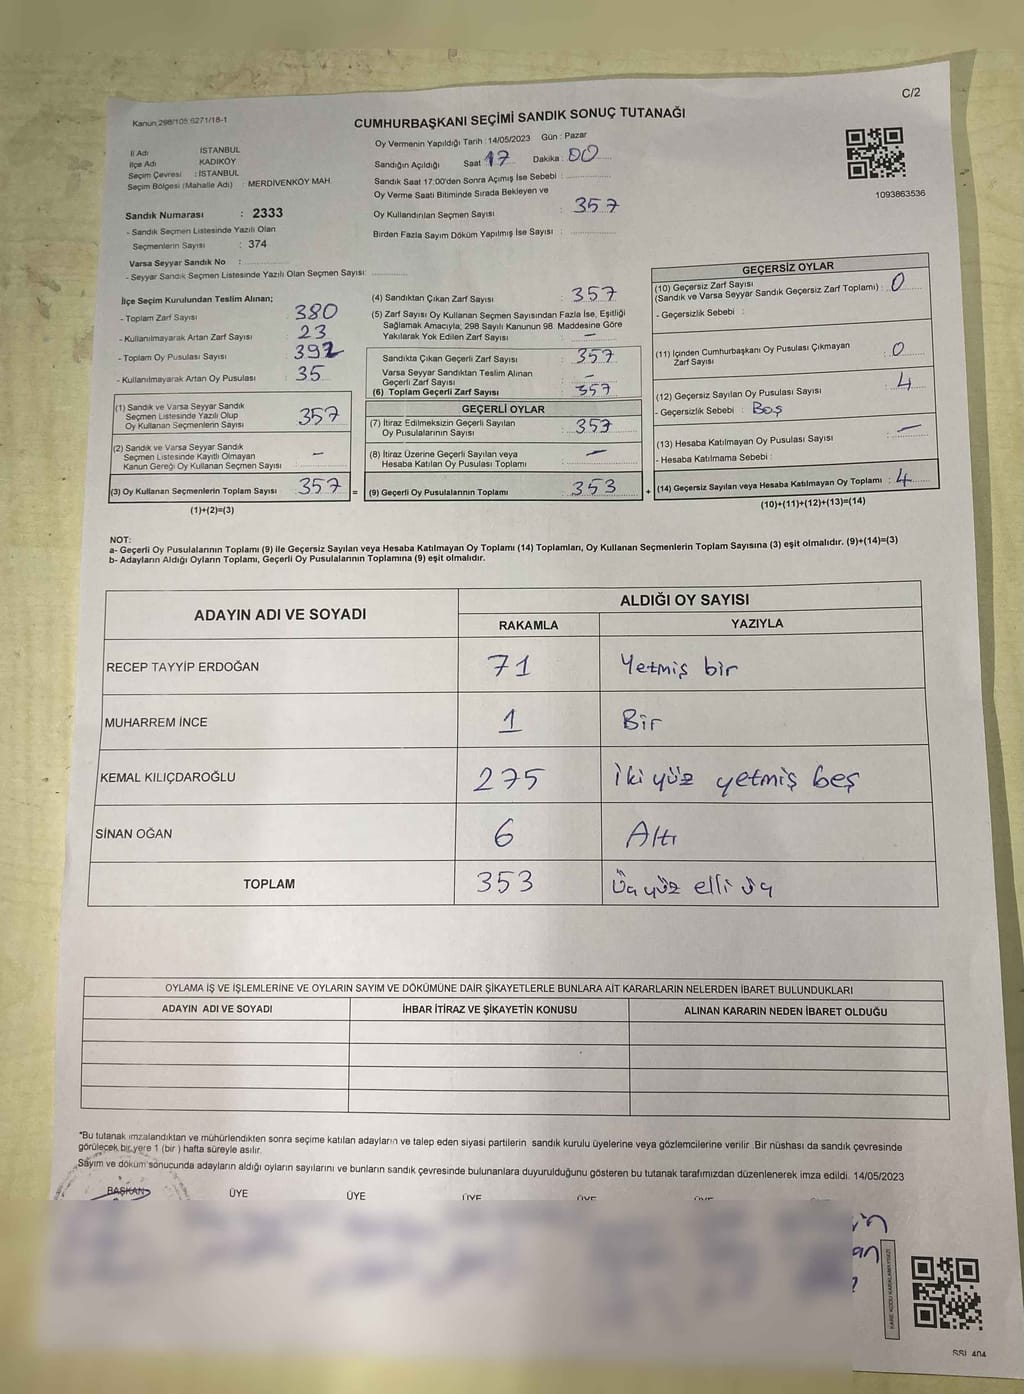 C/2
Kanun 298/105 6271/18-1
CUMHURBAŞKANI SEÇİMİ SANDIK SONUÇ TUTANAĞI
İl Adı : İSTANBUL
İlçe Adı : KADIKÖY
Seçim Çevresi : İSTANBUL
Seçim Bölgesi (Mahalle Adı) : MERDİVENKÖY MAH.
Sandık Numarası : 2333
- Sandık Seçmen Listesinde Yazılı Olan
Seçmenlerin Sayısı : 374
Varsa Seyyar Sandık No :
- Seyyar Sandık Seçmen Listesinde Yazılı Olan Seçmen Sayısı:
Oy Vermenin Yapıldığı Tarih : 14/05/2023 Gün : Pazar
Sandığın Açıldığı Saat 17 Dakika : 00
Sandık Saat 17:00'den Sonra Açımış İse Sebebi :
Oy Verme Saati Bitiminde Sırada Bekleyen ve
Oy Kullandırılan Seçmen Sayısı : 357
Birden Fazla Sayım Döküm Yapılmış İse Sayısı :
1093863536
İlçe Seçim Kurulundan Teslim Alınan;
- Toplam Zarf Sayısı : 380
- Kullanılmayarak Artan Zarf Sayısı : 23
- Toplam Oy Pusulası Sayısı : 392
- Kullanılmayarak Artan Oy Pusulası : 35
(1) Sandık ve Varsa Seyyar Sandık
Seçmen Listesinde Yazılı Olup
Oy Kullanan Seçmenlerin Sayısı : 357
(2) Sandık ve Varsa Seyyar Sandık
Seçmen Listesinde Kayıtlı Olmayan
Kanun Gereği Oy Kullanan Seçmen Sayısı : –
(3) Oy Kullanan Seçmenlerin Toplam Sayısı : 357
(1)+(2)=(3)
=
(4) Sandıktan Çıkan Zarf Sayısı : 357
(5) Zarf Sayısı Oy Kullanan Seçmen Sayısından Fazla İse, Eşitliği
Sağlamak Amacıyla; 298 Sayılı Kanunun 98. Maddesine Göre
Yakılarak Yok Edilen Zarf Sayısı : –
Sandıkta Çıkan Geçerli Zarf Sayısı : 357
Varsa Seyyar Sandıktan Teslim Alınan
Geçerli Zarf Sayısı : –
(6) Toplam Geçerli Zarf Sayısı : 357
GEÇERLİ OYLAR
(7) İtiraz Edilmeksizin Geçerli Sayılan
Oy Pusulalarının Sayısı : 353
(8) İtiraz Üzerine Geçerli Sayılan veya
Hesaba Katılan Oy Pusulası Toplamı : –
(9) Geçerli Oy Pusulalarının Toplamı : 353
+
GEÇERSİZ OYLAR
(10) Geçersiz Zarf Sayısı
(Sandık ve Varsa Seyyar Sandık Geçersiz Zarf Toplamı) : 0
- Geçersizlik Sebebi :
(11) İçinden Cumhurbaşkanı Oy Pusulası Çıkmayan
Zarf Sayısı : 0
(12) Geçersiz Sayılan Oy Pusulası Sayısı : 4
- Geçersizlik Sebebi : Boş
(13) Hesaba Katılmayan Oy Pusulası Sayısı : –
- Hesaba Katılmama Sebebi :
(14) Geçersiz Sayılan veya Hesaba Katılmayan Oy Toplamı : 4
(10)+(11)+(12)+(13)=(14)
NOT:
a- Geçerli Oy Pusulalarının Toplamı (9) ile Geçersiz Sayılan veya Hesaba Katılmayan Oy Toplamı (14) Toplamları, Oy Kullanan Seçmenlerin Toplam Sayısına (3) eşit olmalıdır. (9)+(14)=(3)
b- Adayların Aldığı Oyların Toplamı, Geçerli Oy Pusulalarının Toplamına (9) eşit olmalıdır.
ADAYIN ADI VE SOYADI
ALDIĞI OY SAYISI
RAKAMLA YAZIYLA
RECEP TAYYİP ERDOĞAN 71 Yetmiş bir
MUHARREM İNCE 1 Bir
KEMAL KILIÇDAROĞLU 275 İki yüz yetmiş beş
SİNAN OĞAN 6 Altı
TOPLAM 353 Üç yüz elli üç
OYLAMA İŞ VE İŞLEMLERİNE VE OYLARIN SAYIM VE DÖKÜMÜNE DAİR ŞİKAYETLERLE BUNLARA AİT KARARLARIN NELERDEN İBARET BULUNDUKLARI
ADAYIN ADI VE SOYADI İHBAR İTİRAZ VE ŞİKAYETİN KONUSU ALINAN KARARIN NEDEN İBARET OLDUĞU
*Bu tutanak imzalandıktan ve mühürlendikten sonra seçime katılan adayların ve talep eden siyasi partilerin sandık kurulu üyelerine veya gözlemcilerine verilir. Bir nüshası da sandık çevresinde
görülecek bir yere 1 (bir) hafta süreyle asılır.
Sayım ve döküm sonucunda adayların aldığı oyların sayılarını ve bunların sandık çevresinde bulunanlara duyurulduğunu gösteren bu tutanak tarafımızdan düzenlenerek imza edildi. 14/05/2023
BAŞKAN ÜYE ÜYE ÜYE ÜYE
KARE KODU KARALAMAYINIZ!